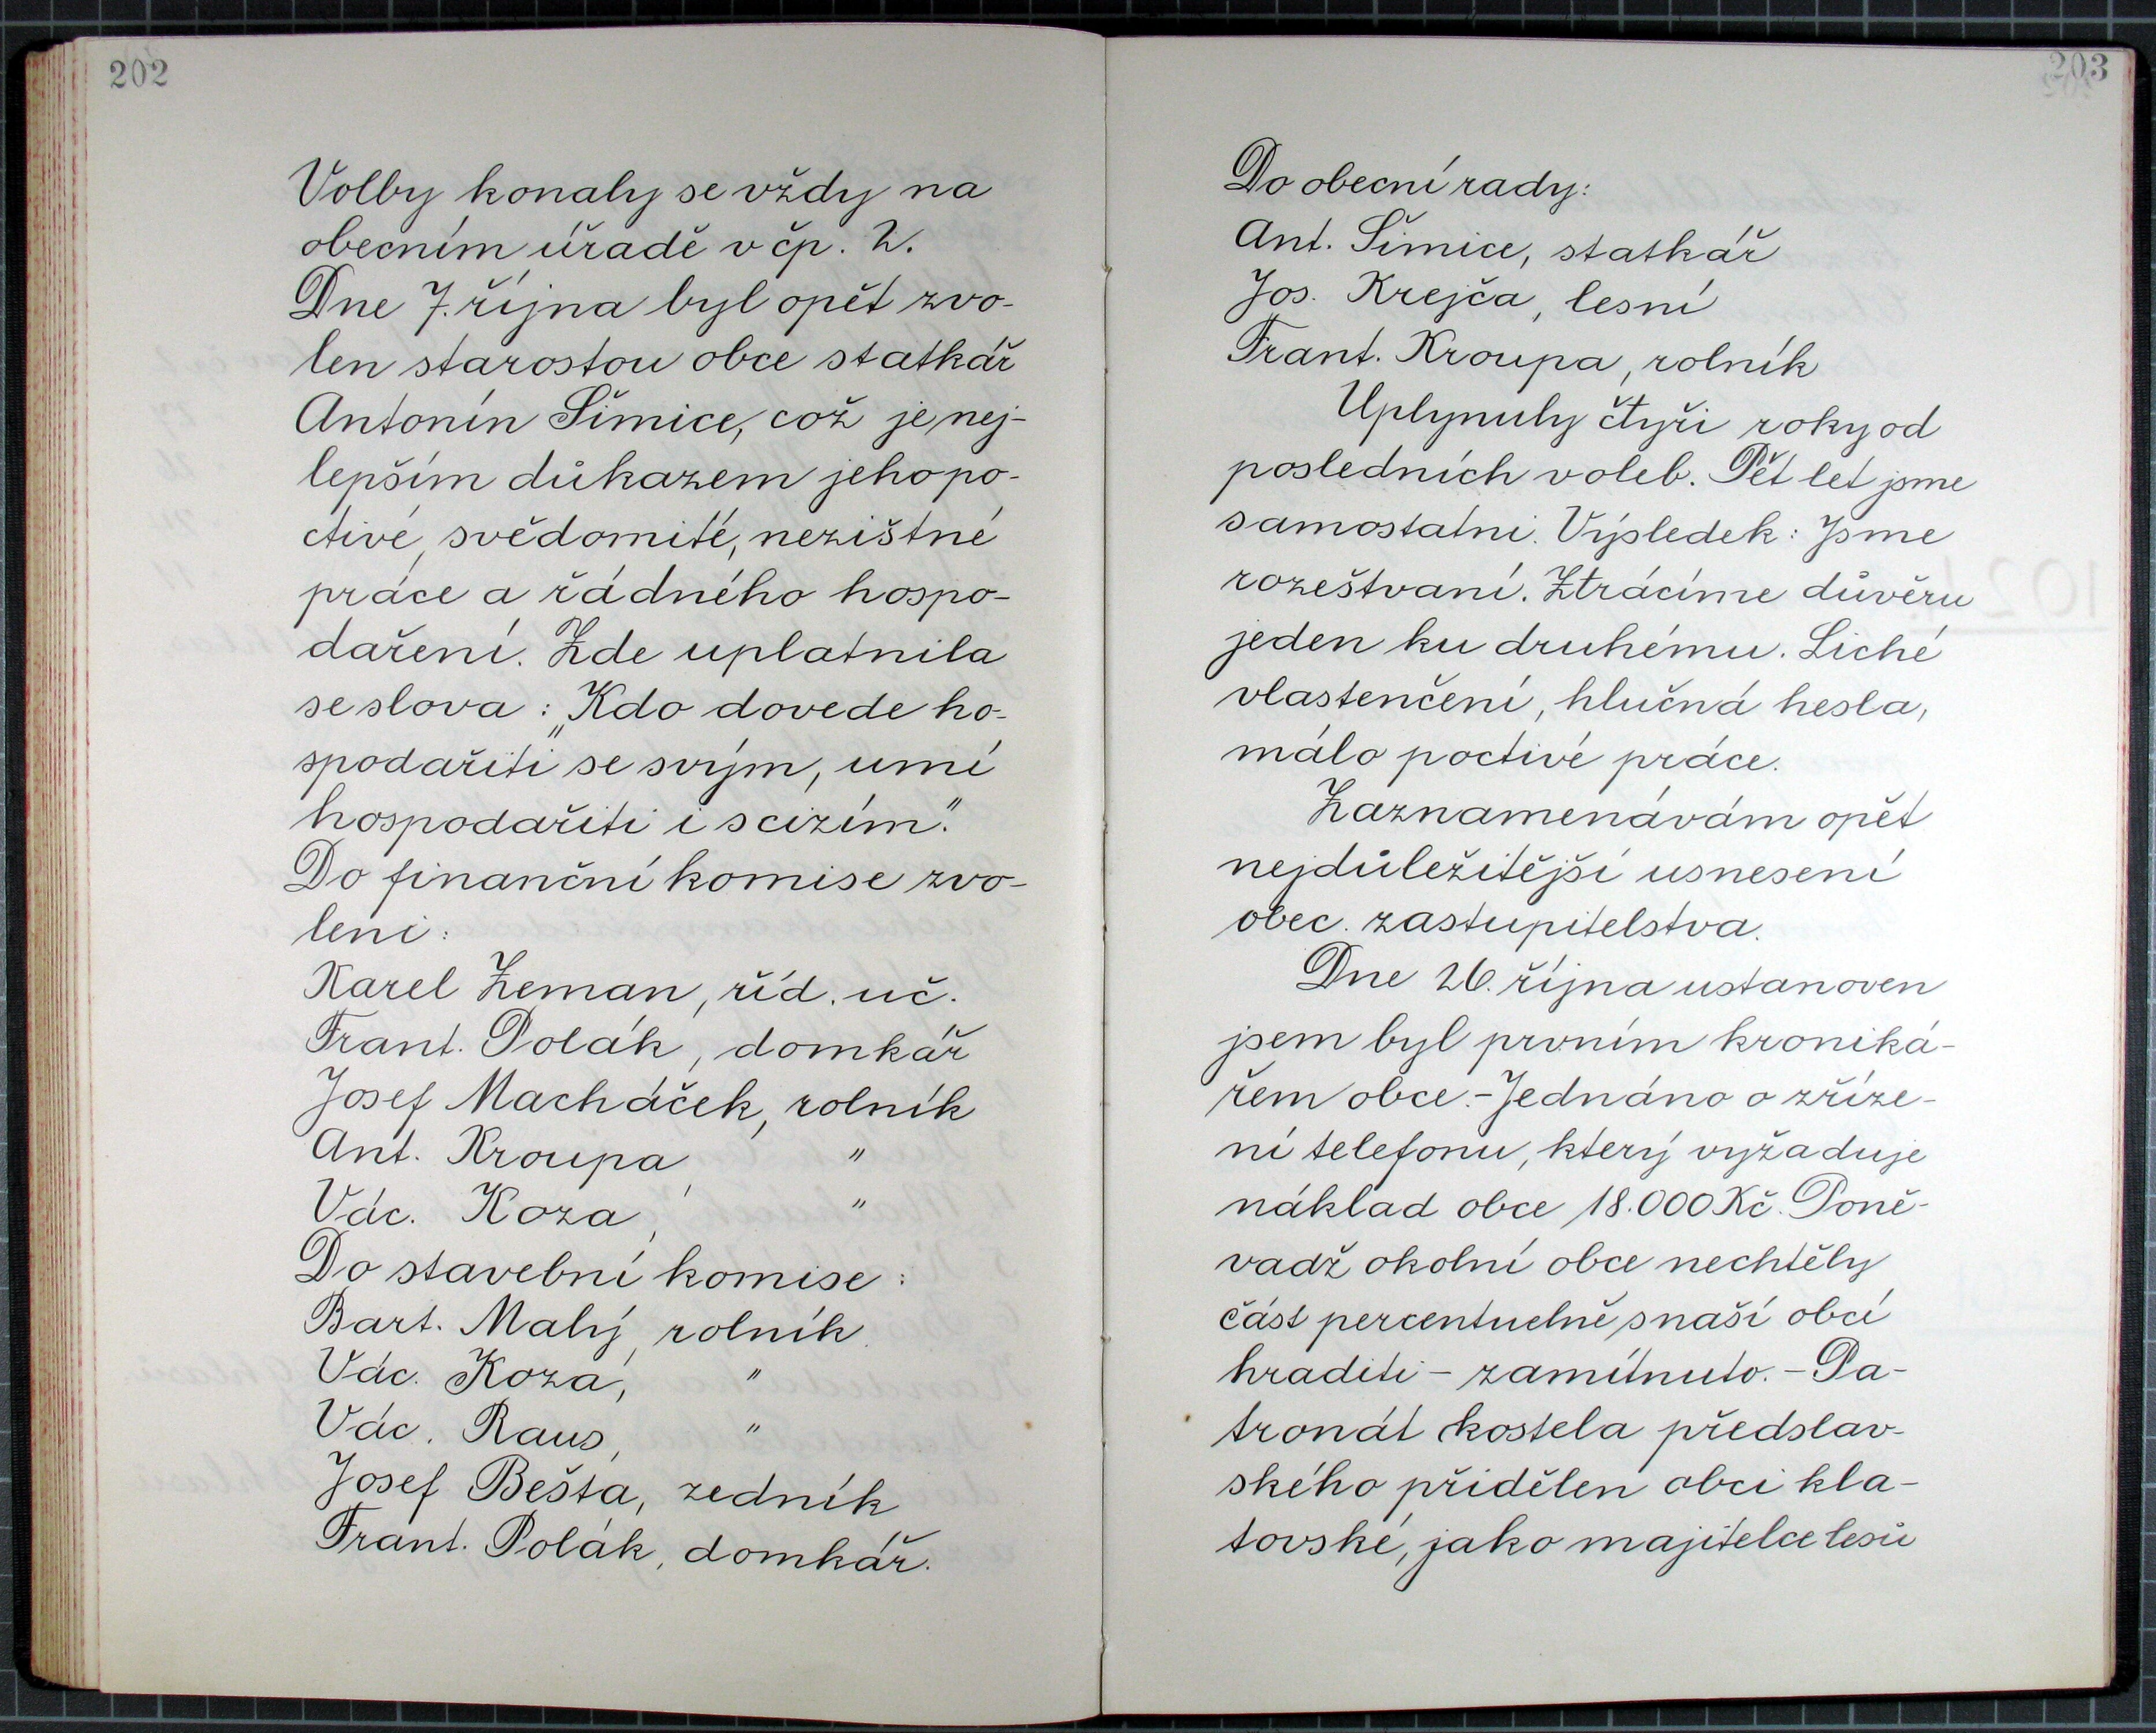 202
Volby konaly se vždy na
obecním úřadě v čp. 2.
Dne 7. října byl opět zvo-
len starostou obce statkář
Antonín Šimice, což je nej-
lepším důkazem jeho po-
ctivé, svědomité, nezištné
práce a řádného hospo-
daření. Zde uplatnila
se slova: „Kdo dovede ho-
spodařiti se svým, umí
hospodařiti i s cizím."
Do finanční komise zvo-
leni:
Karel Zeman, říd. uč.
Frant. Polák, domkář
Josef Macháček, rolník
Ant. Kroupa, "
Vác. Koza, "
Do stavební komise:
Bart. Malý, rolník
Vác. Koza, "
Vác. Raus, "
Josef Bešta, zedník
Frant. Polák, domkář.
203
Do obecní rady:
Ant. Šimice, statkář
Jos. Krejča, lesní
Frant. Kroupa, rolník
Uplynuly čtyři roky od
posledních voleb. Pět let jsme
samostatni. Výsledek: Jsme
rozeštvaní. Ztrácíme důvěru
jeden ku druhému. Liché
vlastenčení, hlučná hesla,
málo poctivé práce.
Zaznamenávám opět
nejdůležitější usnesení
obec. zastupitelstva.
Dne 26. října ustanoven
jsem byl prvním kroniká-
řem obce. - Jednáno o zříze-
ní telefonu, který vyžaduje
náklad obce 18.000 Kč. Poně-
vadž okolní obce nechtěly
část percentuelně s naší obcí
hraditi - zamítnuto. - Pa-
tronát kostela předslav-
ského přidělen obci kla-
tovské, jako majitelce lesů